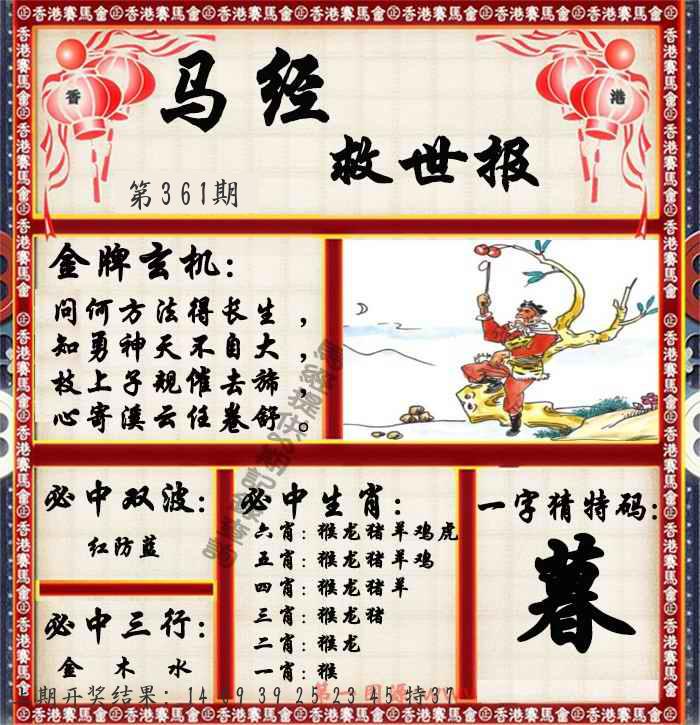 香港賽馬會
香
港
马经
救世报
第361期
金牌玄机：
问何方法得长生，
知勇神天不自大，
枝上子规催去旆，
心寄溪云任卷舒。
必中双波：
红防蓝
必中三行：
金 木 水
必中生肖：
六肖：猴龙猪羊鸡虎
五肖：猴龙猪羊鸡
四肖：猴龙猪羊
三肖：猴龙猪
二肖：猴龙
一肖：猴
一字猜特码：
暮
期开奖结果：14 09 39 25 23 45 特37